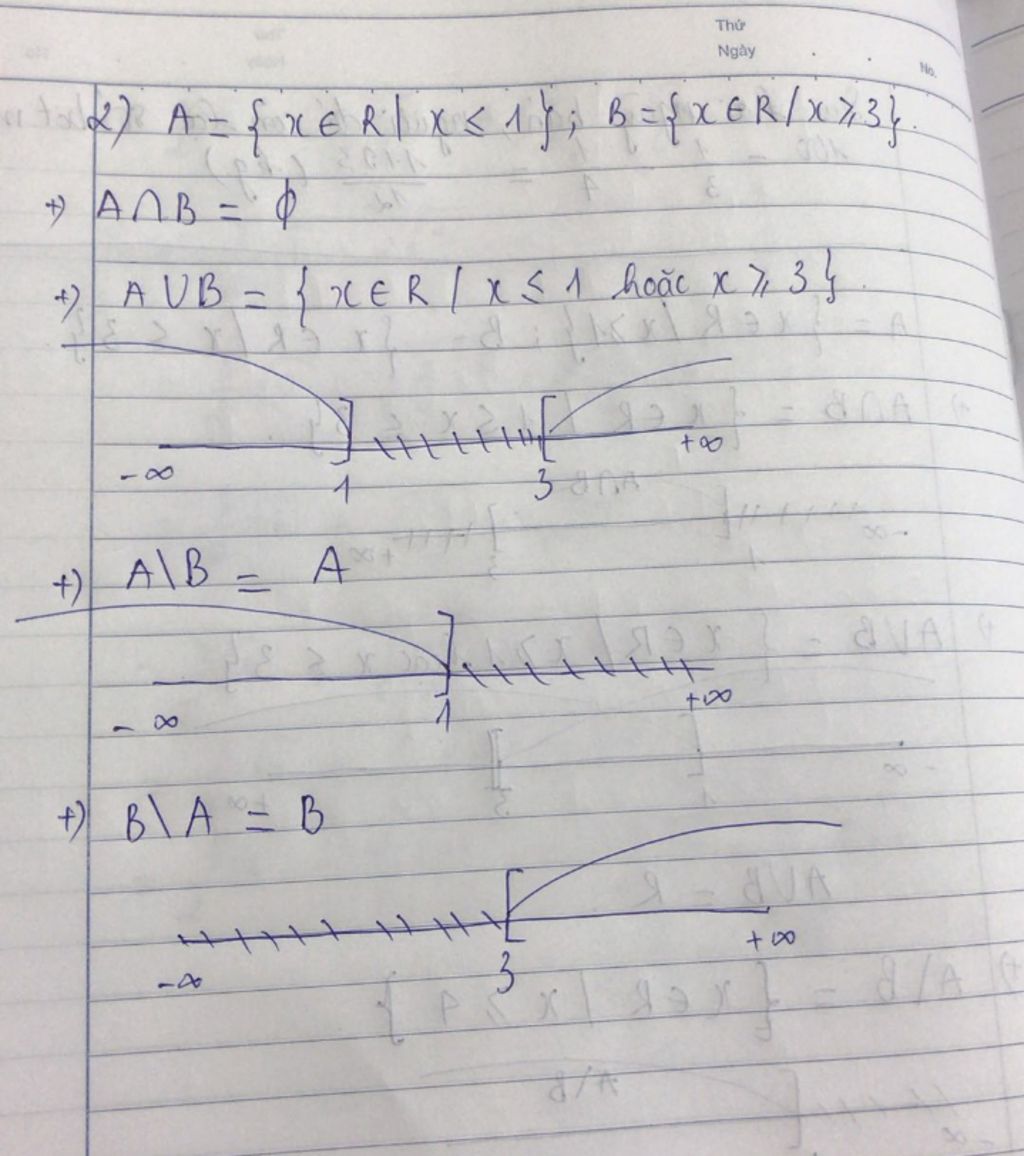 Thứ
Ngày
No.
2) A = { x ∈ R / x ≤ 1 } ; B = { x ∈ R / x ⩾ 3 }.
+) A ∩ B = ϕ
+) A ∪ B = { x ∈ R / x ≤ 1 hoặc x ⩾ 3 }.
-∞ ] 1 [ 3 +∞
+) A \ B = A
-∞ ] 1 +∞
+) B \ A = B
-∞ [ 3 +∞